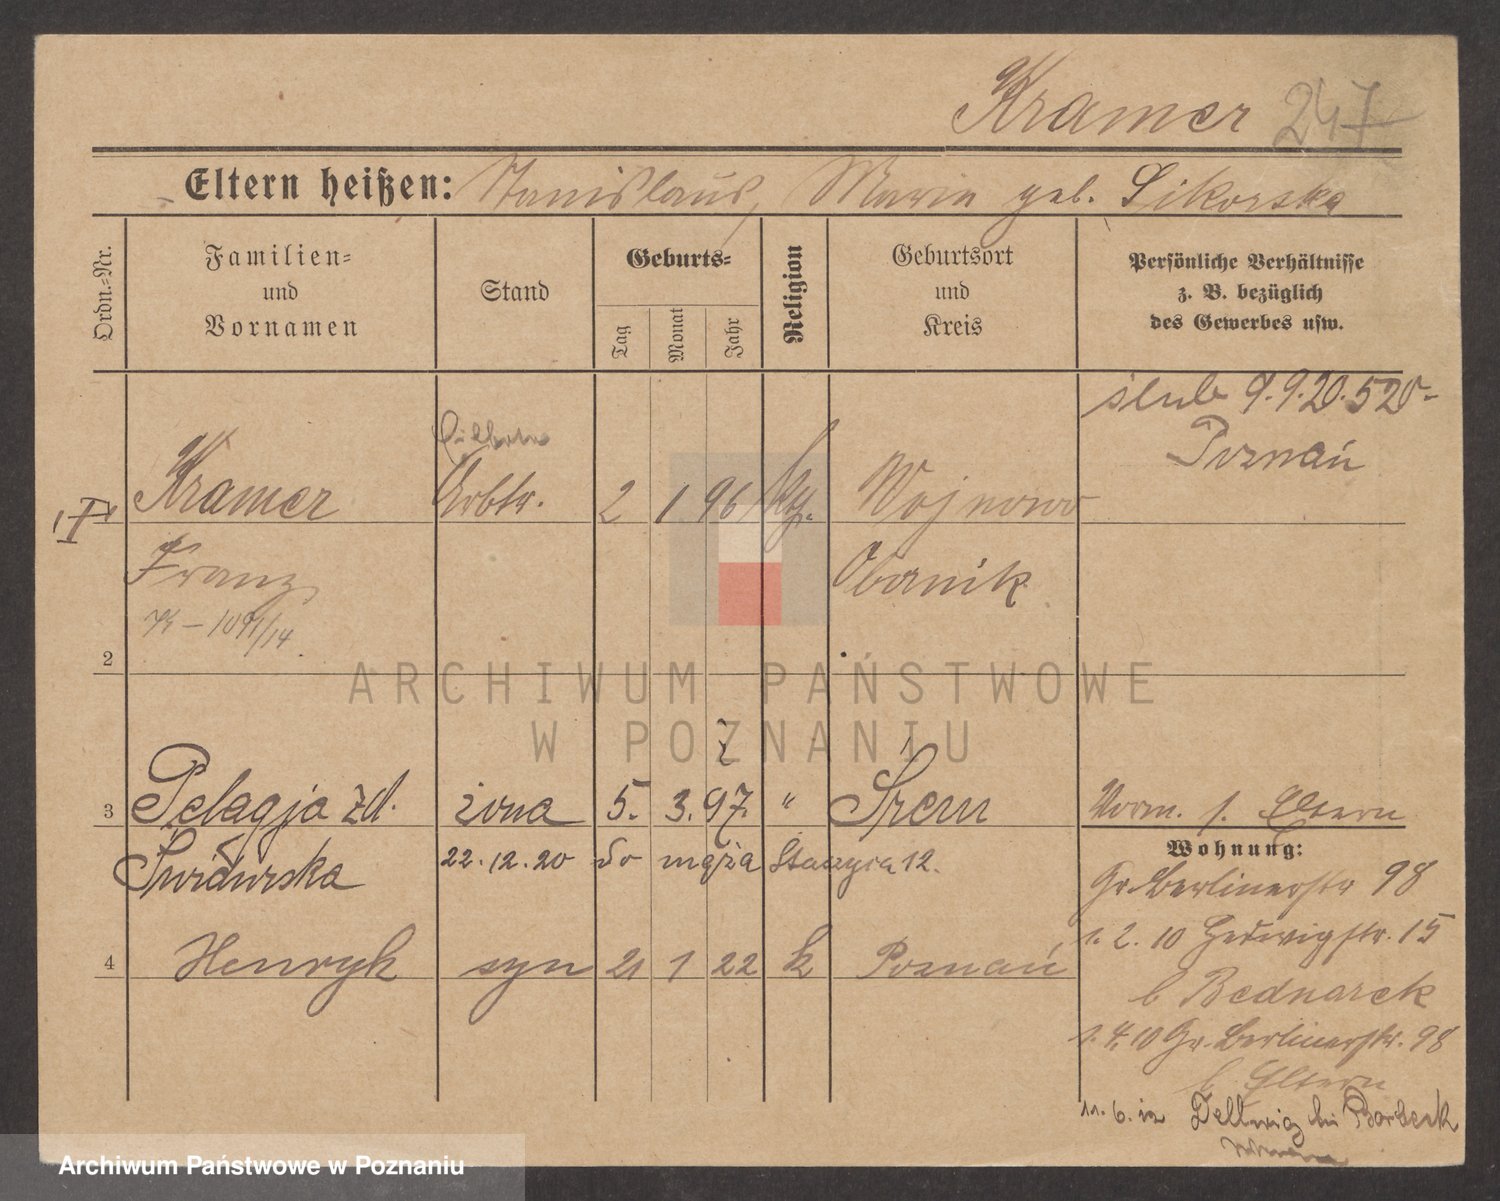 Kramer 247
Eltern heißen: Stanislaus, Maria geb. Sikorska
Ordn.-Nr.
Familien-
und
Vornamen
Stand
Geburts-
Tag
Monat
Jahr
Religion
Geburtsort
und
Kreis
Persönliche Verhältnisse
z. B. bezüglich
des Gewerbes usw.
ślub 9.9.20. 520-
Poznań
Kramer Arbtr. 2 1 96 Wojnowo
Franz Obornik
2
ARCHIWUM PAŃSTWOWE
W POZNANIU
3 Pelagja zd. żona 5. 3. 97. " Śrem
Vorm. s. Eltern
Świdurska 22.12.20 do męża 12.
Wohnung:
Gr. Berlinerstr 98
1. 2. 10 Hedwigstr. 15
4 Henryk syn 21 1 22 k Poznań
b Bednarek
1. 4. 10 Gr. Berlinerstr. 98
b. Eltern
11. 6. in Dellwig bei Borbeck
Archiwum Państwowe w Poznaniu